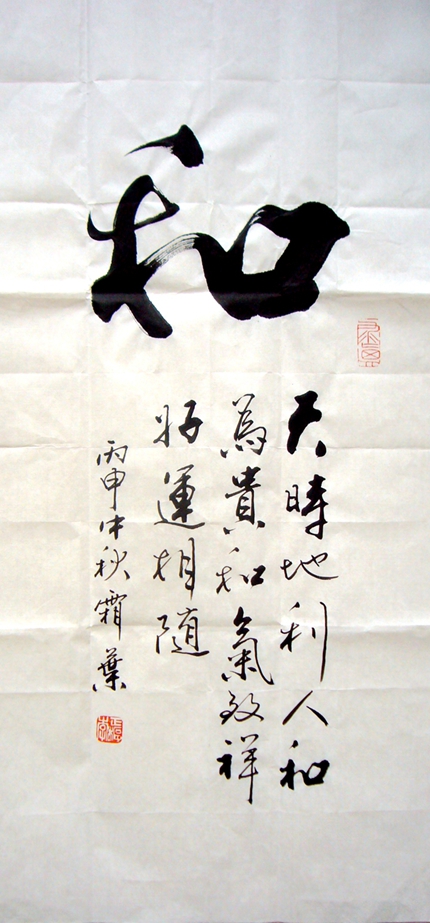 和
天時地利人和
為貴和氣致祥
好運相随
丙申中秋霜葉